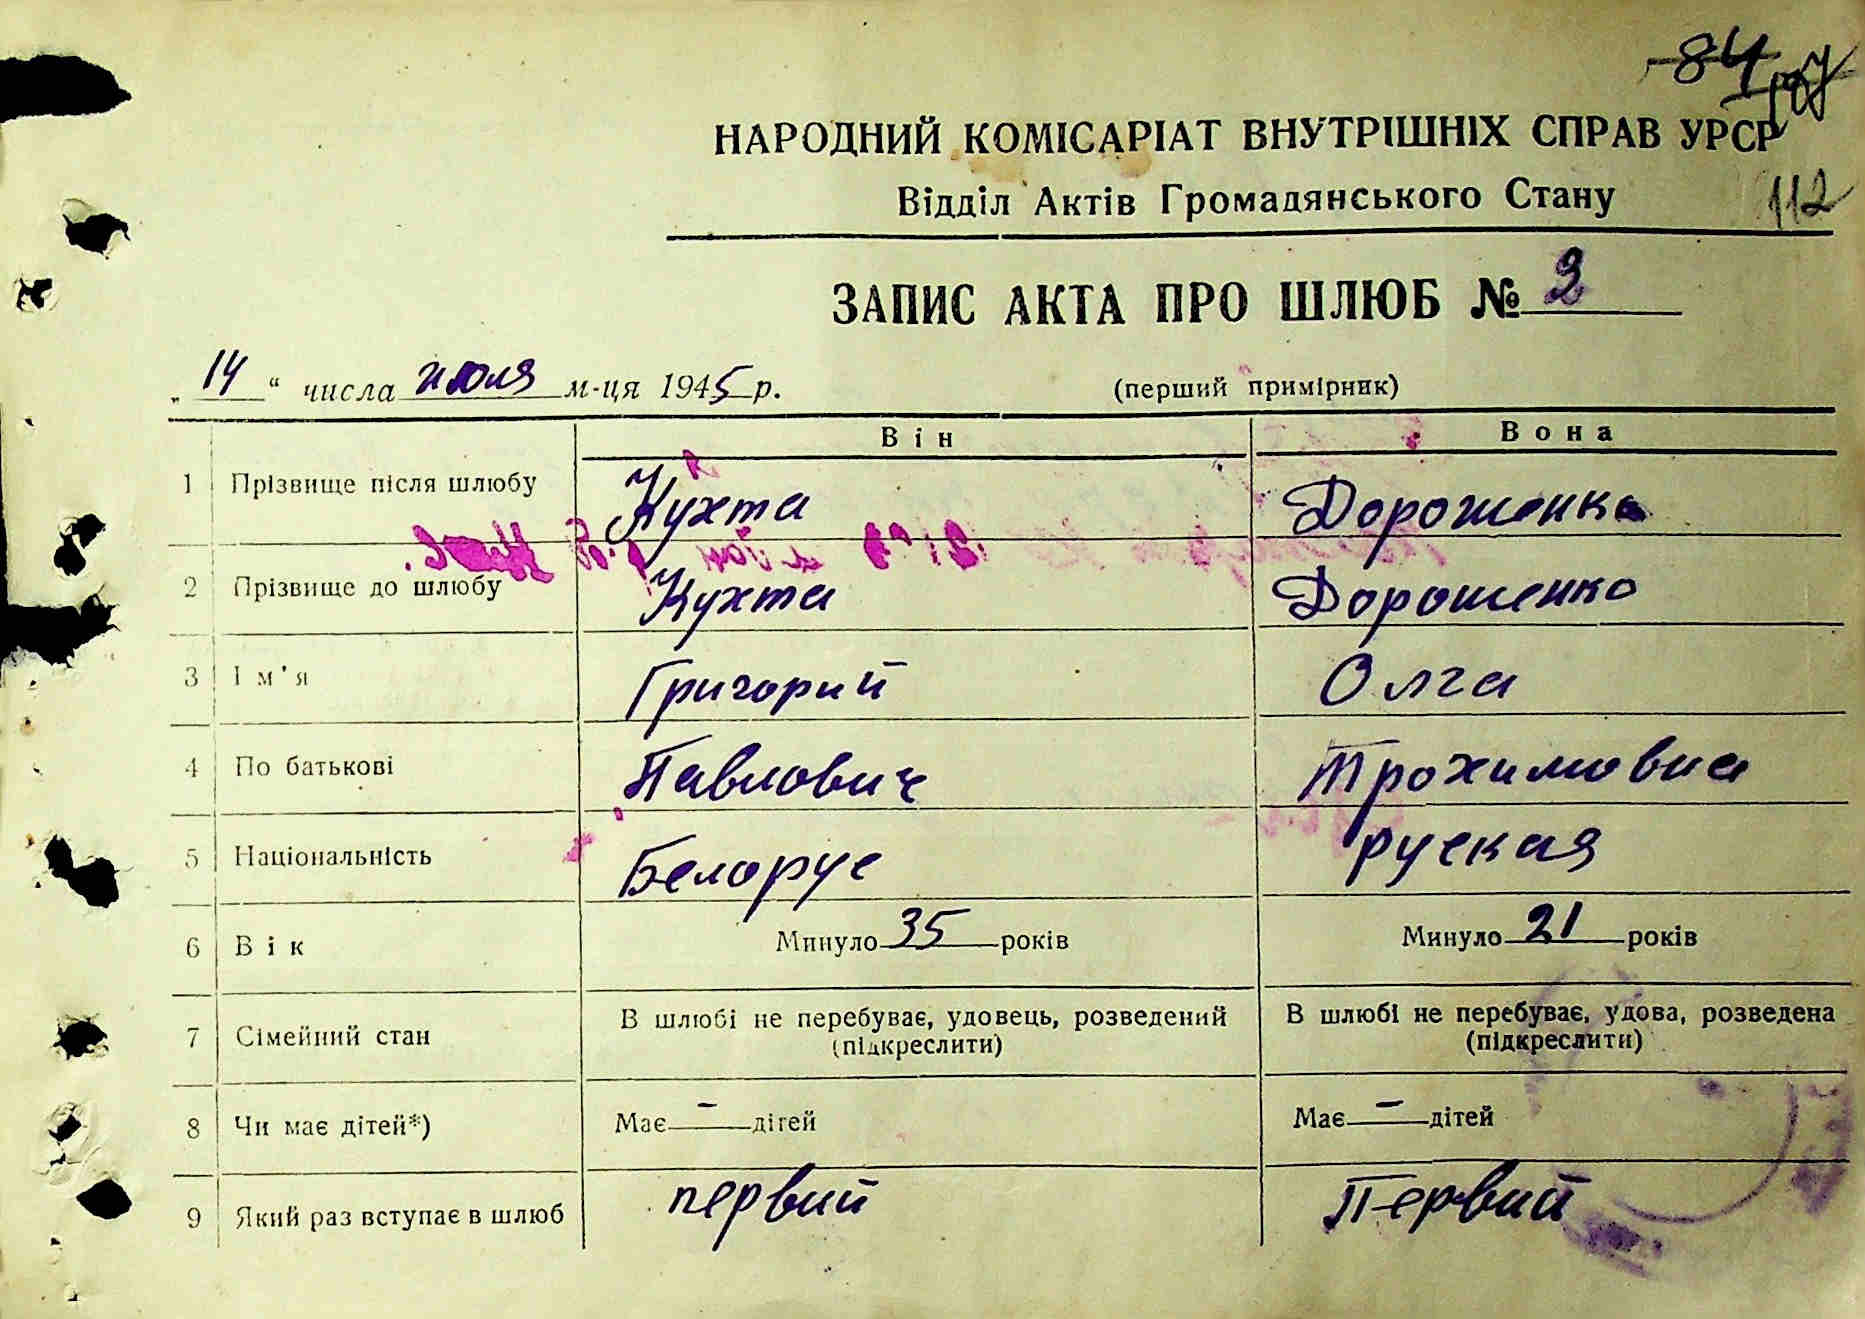 84
107
НАРОДНИЙ КОМІСАРІАТ ВНУТРІШНІХ СПРАВ УРСР
Відділ Актів Громадянського Стану
112
ЗАПИС АКТА ПРО ШЛЮБ № 2
„ 14 “ числа июля м-ця 1945 р. (перший примірник)
Він Вона
1 Прізвище після шлюбу Кухта Дорошенко
2 Прізвище до шлюбу Кухта Дорошенко
3 Ім'я Григорий Олга
4 По батькові Павлович Трохимовна
5 Національність Белорус руская
6 Вік Минуло 35 років Минуло 21 років
7 Сімейний стан В шлюбі не перебуває, удовець, розведений (підкреслити) В шлюбі не перебуває, удова, розведена (підкреслити)
8 Чи має дітей*) Має — дітей Має — дітей
9 Який раз вступає в шлюб первий Первий